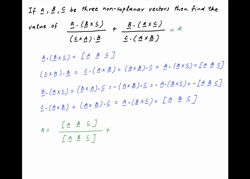 If A, B, C be three non-coplanar vectors then find the
value of A.(B×C) / (C×A).B + B.(A×C) / C.(A×B) = A
A.(B×C) = [A B C]
(C×A).B = C.(A×B) = (A×B).C = A.(B×C) = [A B C]
B.(A×C) = (B×A).C = -(A×B).C = -A.(B×C) = -[A B C]
C.(A×B) = (A×B).C = A.(B×C) = [A B C]
A = [A B C] / [A B C] +